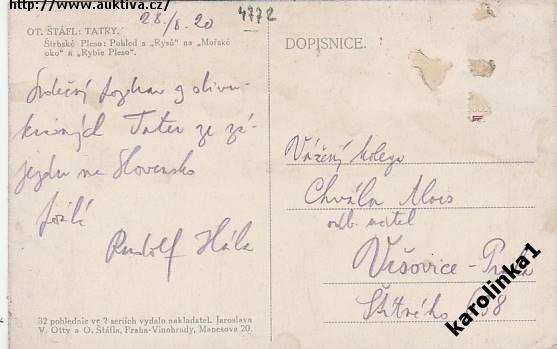 http://www.auktiva.cz
28/8. 20
4772
OT. ŠTÁFL: TATRY.
Štrbské Pleso: Pohled s „Rysů" na „Mořské
oko" a „Rybie Pleso".
DOPISNICE.
Srdečný pozdrav z
krásných Tater ze zá-
jezdu na Slovensko
Rudolf Hála
Vážený kolega
Chvála Alois
odb. učitel
Vršovice – Praha
32 pohlednic ve 2 seriích vydalo nakladatel. Jaroslava
V. Otty a O. Štáfla, Praha-Vinohrady, Manesova 20.
karolinka1